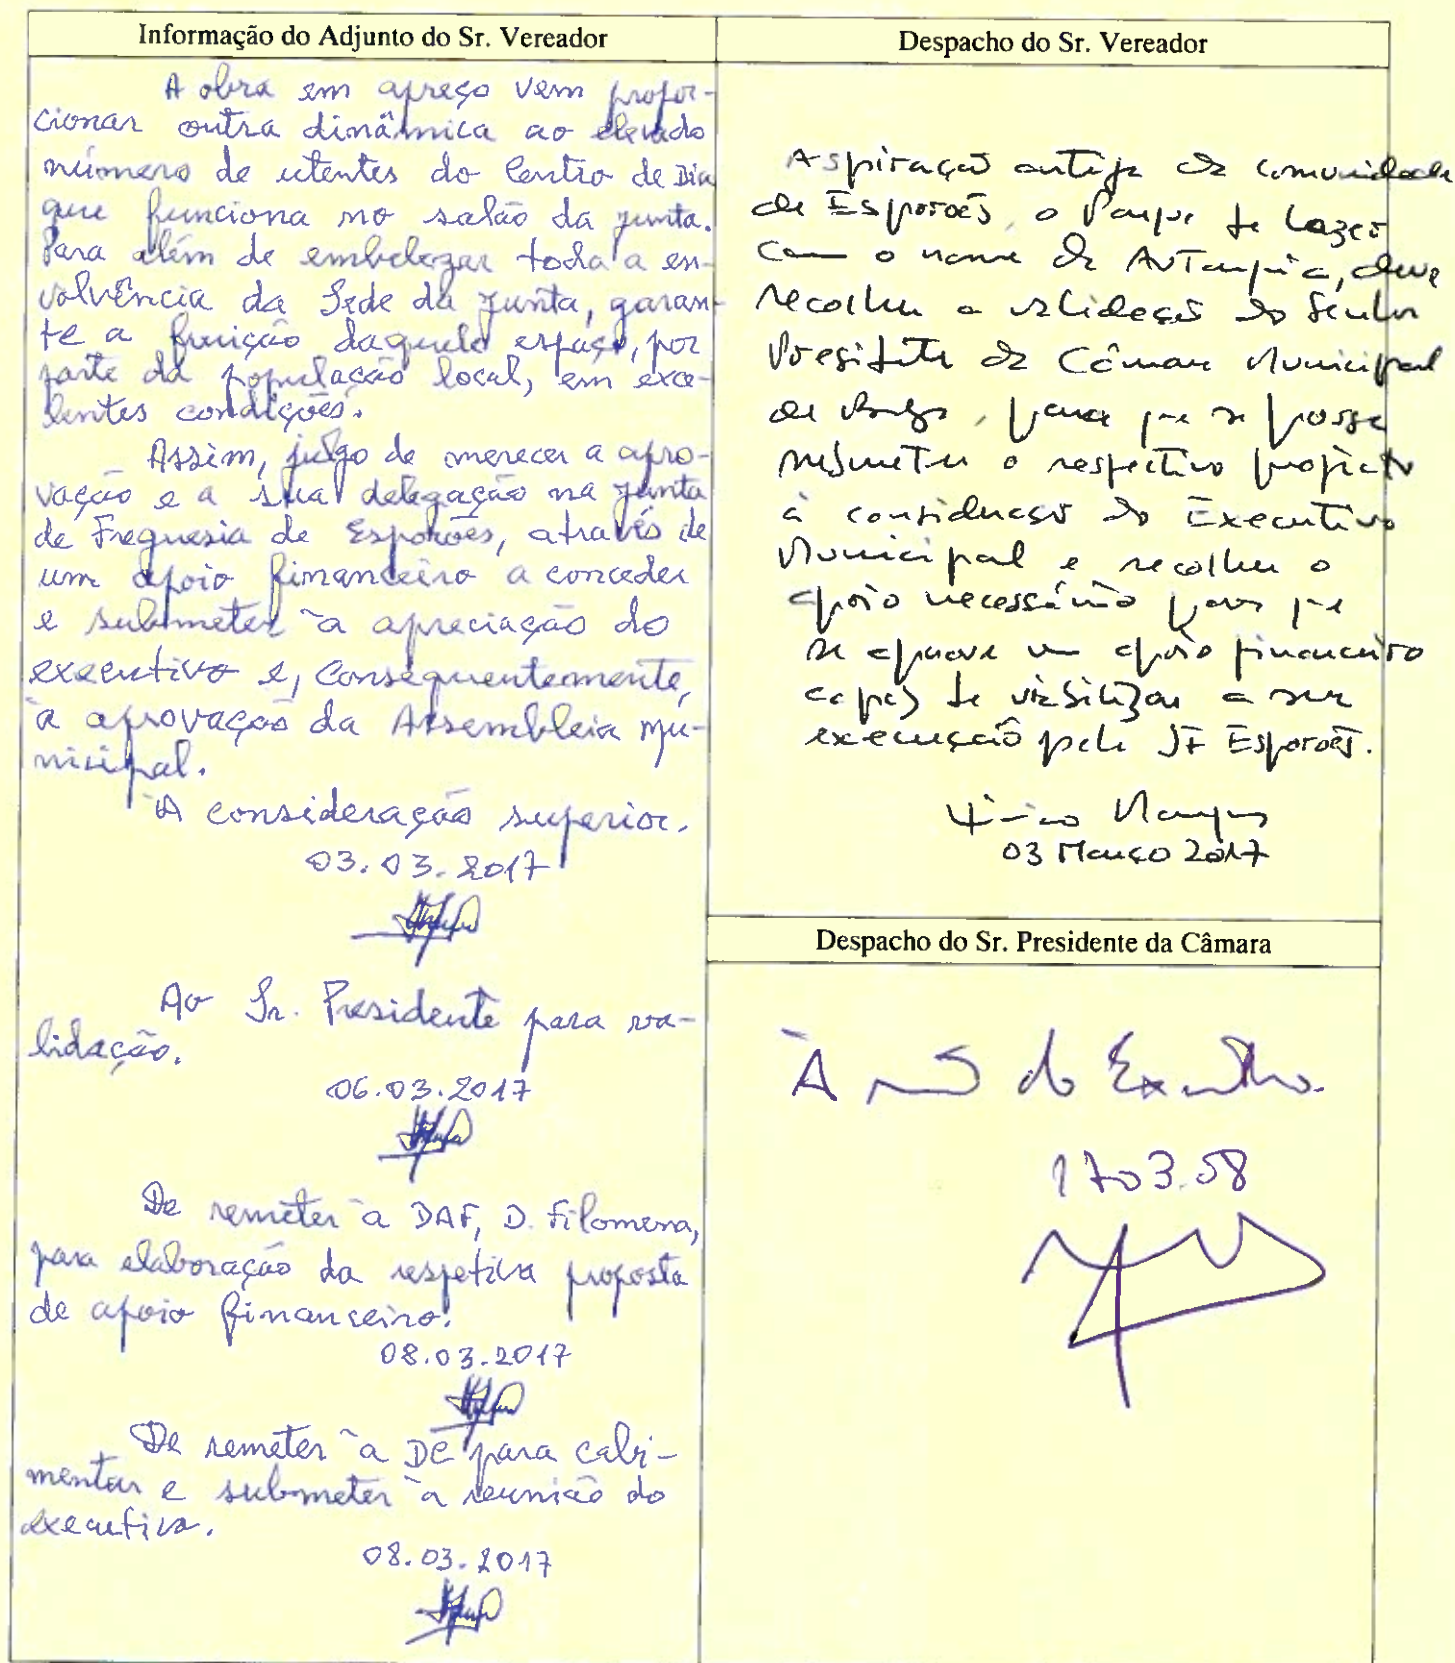 Informação do Adjunto do Sr. Vereador
A obra em apreço vem propor-
cionar outra dinâmica ao elevado
número de utentes do Centro de Dia
que funciona no salão da junta.
Para além de embelezar toda a en-
volvência da Sede da Junta, garan-
te a fruição daquele espaço, por
parte da população local, em exce-
lentes condições.
Assim, julgo de merecer a apro-
vação e a sua delegação na Junta
de Freguesia de Esporões, através de
um apoio financeiro a conceder
e submeter à apreciação do
executivo e, consequentemente,
à aprovação da Assembleia Mu-
nicipal.
À consideração superior.
03.03.2017
Ao Sr. Presidente para va-
lidação.
06.03.2017
De remeter à DAF, D. Filomena,
para elaboração da respetiva proposta
de apoio financeiro.
08.03.2017
De remeter à DC para cabi-
mentar e submeter à reunião do
executivo.
08.03.2017
Despacho do Sr. Vereador
Aspiração antiga da comunidade
de Esporões, o Parque de Lazer
com o nome da Autarquia, deve
recolher a validação do Senhor
Presidente da Câmara Municipal
de Braga, para que se possa
submeter o respectivo projecto
à consideração do Executivo
Municipal e recolher o
apoio necessário para que
se aprove um apoio financeiro
capaz de viabilizar a sua
execução pela JF Esporões.
03 Março 2017
Despacho do Sr. Presidente da Câmara
À do Executivo.
1703.08